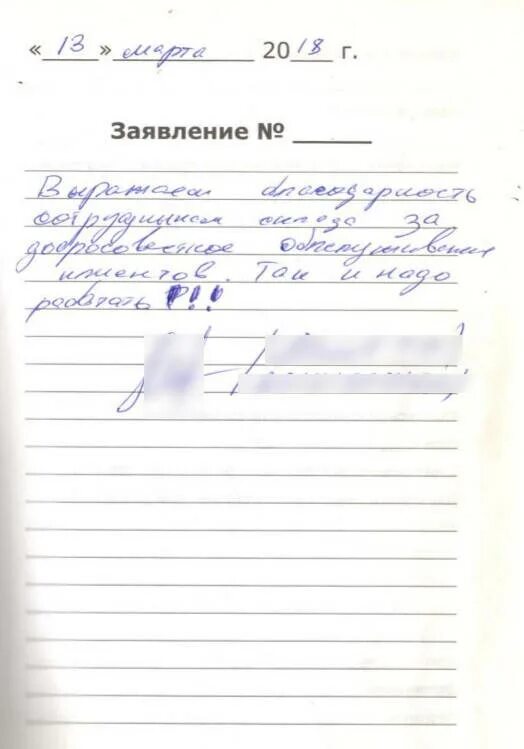 «13» марта 2018 г.
Заявление № ______
Выражаем благодарность
сотрудникам склада за
добросовестное обслуживание
клиентов. Так и надо
работать !!!